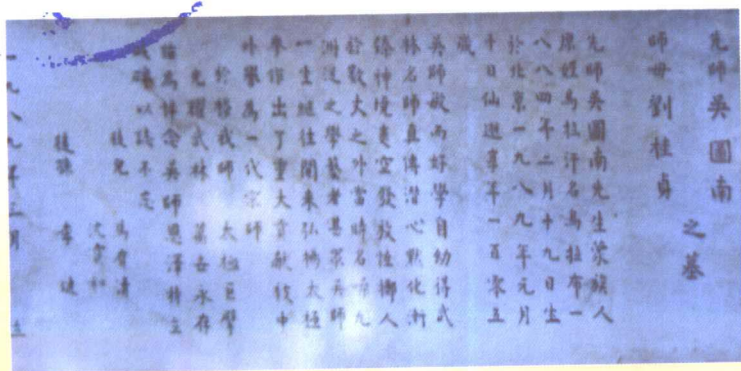 先師吳圖南
師母劉桂貞
之墓
先師吳圖南先生蒙族人
原姓烏拉汗名烏拉布一
八八四年二月十九日生
於北京一九八九年元月
十日仙逝享年一百零五
歲
吳師敏而好學自幼得武
林名師真傳潛心默化漸
臻神境淩空發放 擲人
於數丈之外當時名 九
洲從之學藝者甚眾吳師
一生繼往開來弘揚太極
拳作出了重大貢獻後中
外譽為一代宗師
於揚我師 太極巨擘
光耀武林 萬古永存
為悼念吳師恩澤特立
碑以誌不忘
馬有清
沈寶和
李璉
一九八九年三月 立